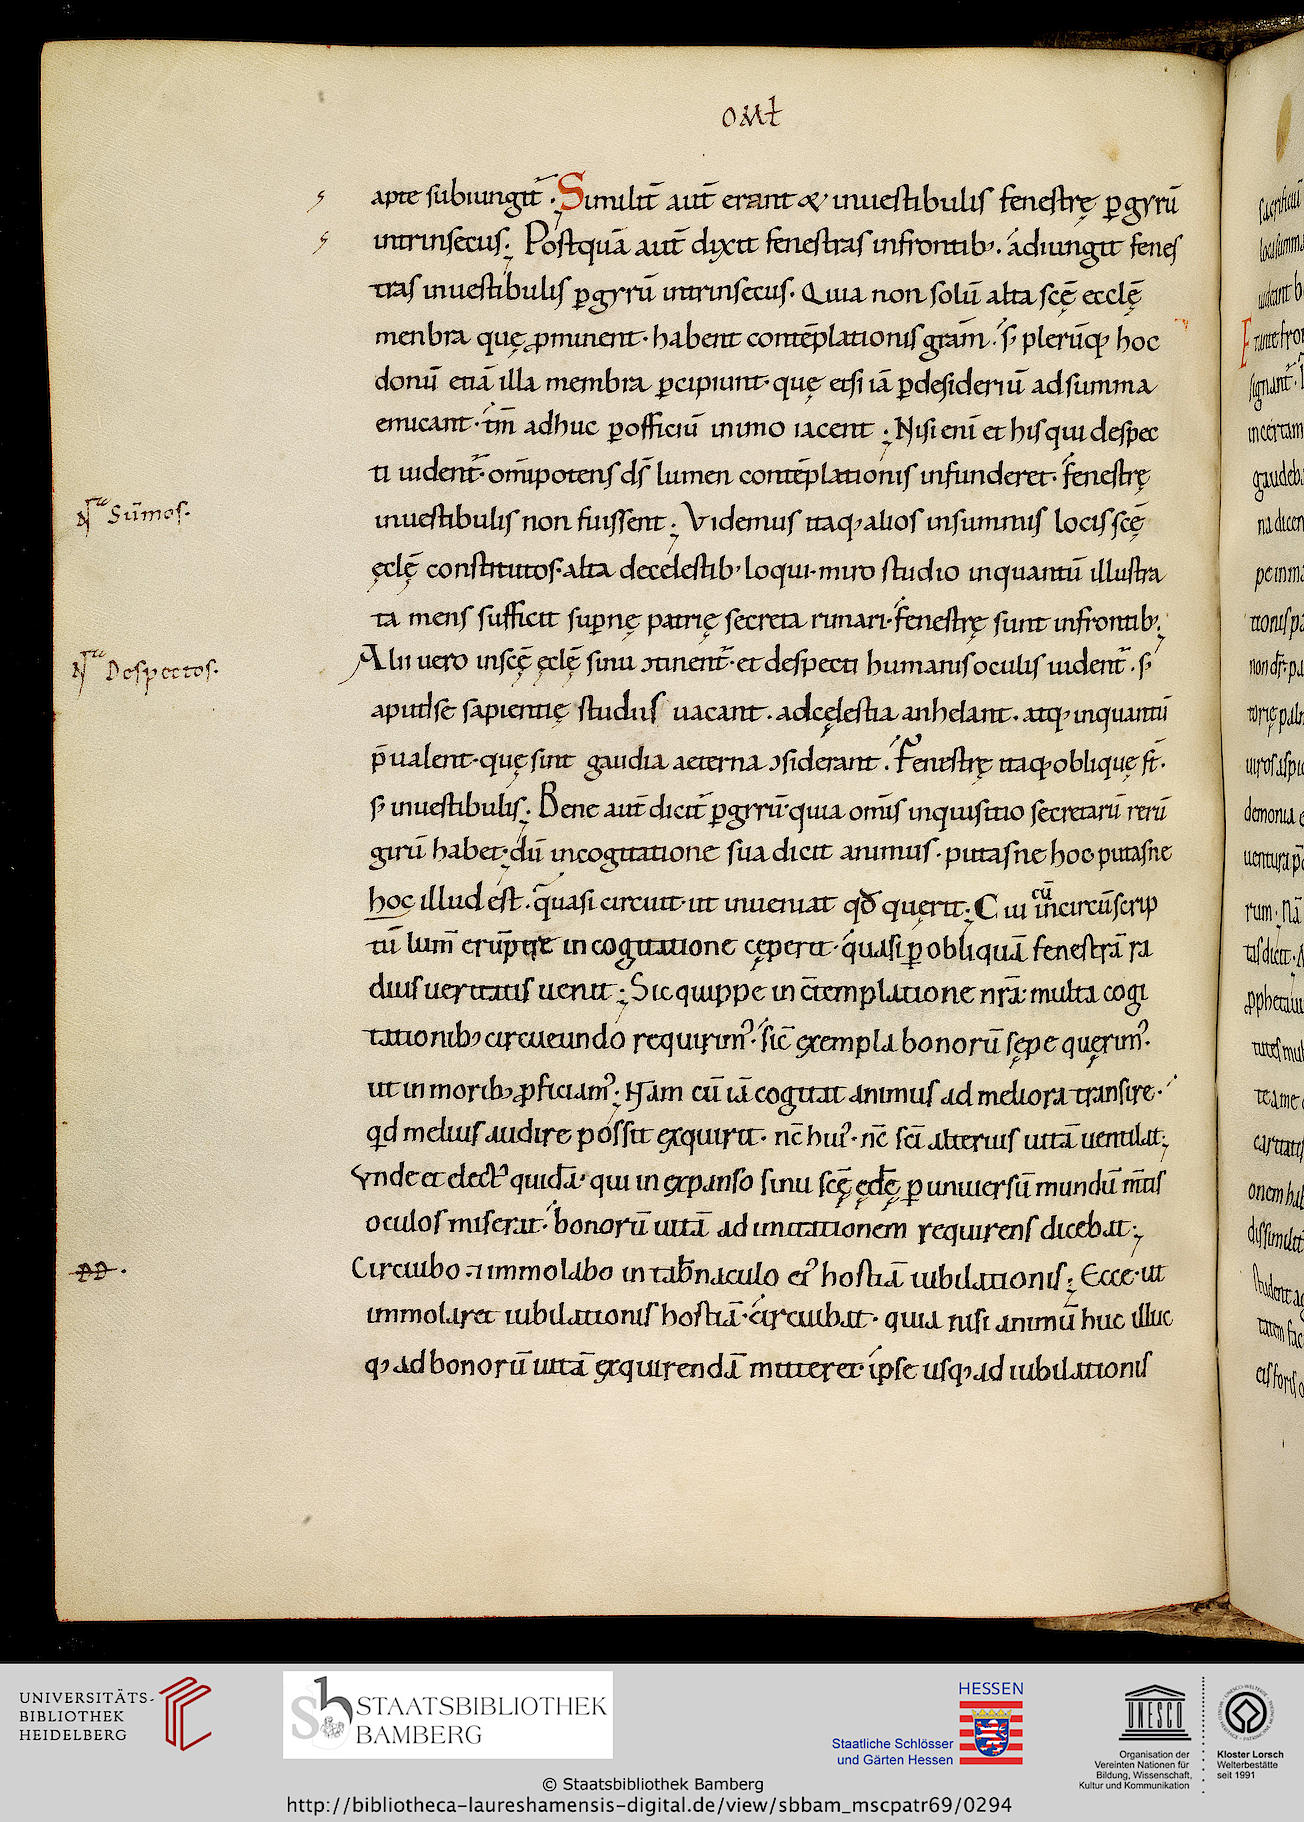 OMꝉ
apte subiungit᷑. Similit᷑ aut᷑ erant & inuestibulis fenestrę ꝑgyrū
intrinsecus; Postquā aut᷑ dixit fenestras infrontib;. adiungit fenes
tras inuestibulis ꝑgyrū intrinsecus. Quia non solū alta scē ecclę̄
menbra quę ꝓminent. habent contēplationis gr̄am. s; plerūq; hoc
donū etiā illa membra ꝑcipiunt. quę etsi iā ꝑdesideriū adsumma
emicant. tm̄ adhuc ꝑofficiū inimo iacent; Nisi eni᷑ et his qui despec
ti uident᷑. om̄ipotens ds̄ lumen contēplationis infunderet. fenestrę
inuestibulis non fuissent; Videmus itaq; alios insummis locis scę̄
ęclę̄ constitutos. alta decelestib; loqui. miro studio inquantū illustra
ta mens sufficit suꝑnę patrię secreta rimari. fenestrę sunt infrontib;;
Alii uero inscę̄ ęclę̄ sinu ↄtinent᷑. et despecti humanis oculis uident᷑. s;
apud se sapientię studiis uacant. adcęlestia anhelant. atq; inquantū
p̄ualent. quę sint gaudia aeterna ↄsiderant. Fenestrę itaq; oblique st̄.
s; inuestibulis; Bene aut᷑ dicit᷑ ꝑgyrū. quia om̄is inquisitio secretarū rerū
girū habet. dū incogitatione sua dicit animus. putasne hoc putasne
hoc illud est. quasi circuit. ut inueniat qđ quęrit; Cui cū incircūscrip
tū lum̄ erūpere incogitatione cęperit. quasi ꝑ obliquā fenestrā ra
dius ueritatis uenit; Sic quippe in c̄templatione nr̄a. multa cogi
tationib; circueundo requirim᷒. sic̄ exempla bonorū sępe quęrim᷒.
ut in morib; ꝓficiam᷒; Nam cū iā cogitat animus ad meliora transire.
qd melius audire possit exquirit. nc̄ hui᷒. nc̄ sc̄i alterius uitā uentilat;
Vnde et elect᷒ quidā. qui in expanso sinu scę̄ ęclę̄ ꝑ uniuersū mundū m̄tis
oculos miserat. bonorū uitā ad imitationem requirens dicebat;
Circuibo ⁊ immolabo in tab̄naculo ei᷒ hostiā iubilationis; Ecce. ut
immolaret iubilationis hostiā. circuibat. quia nisi animū huc illuc
q; ad bonorū uitā exquirendā mitteret. ipse usq; ad iubilationis
Nta Sūmos.
Nta Despectos.
PD.
UNIVERSITÄTS-
BIBLIOTHEK
HEIDELBERG
STAATSBIBLIOTHEK
BAMBERG
HESSEN
Staatliche Schlösser
und Gärten Hessen
UNESCO
Organisation der
Vereinten Nationen für
Bildung, Wissenschaft,
Kultur und Kommunikation
Kloster Lorsch
Welterbestätte
seit 1991
© Staatsbibliothek Bamberg
http://bibliotheca-laureshamensis-digital.de/view/sbbam_mscpatr69/0294